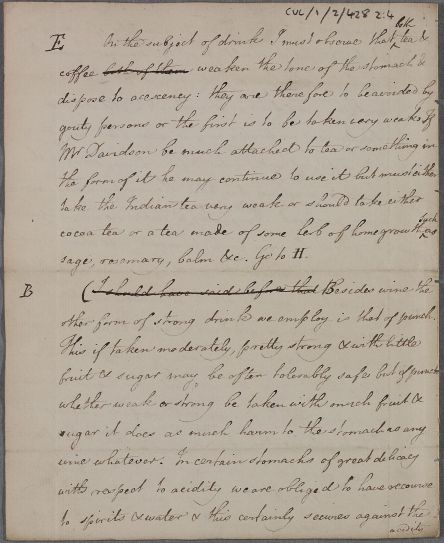 CUL/1/2/428 2:4
E On the subject of drink I must observe that both tea &
coffee both of them weaken the tone of the stomach &
dispose to acescency: they are therefore to be avoided by
gouty persons or the first is to be taken very weak. If
Mr Davidson be much attached to tea or something in
the form of it he may continue to use it but must either
take the Indian tea very weak or should take either
cocoa tea or a tea made of some herb of home growth such as
sage, rosemary, balm &c. Go to H.
B (I should have said before that Besides wine the
other form of strong drink we employ is that of punch.
This if taken moderately, pretty strong & with little
fruit & sugar may be often tolerably safe but if punch
whether weak or strong be taken with much fruit &
sugar it does as much harm to the stomach as any
wine whatever. In certain stomachs of great delicacy
with respect to acidity we are obliged to have recourse
to spirits & water & this certainly secures against the
acidity